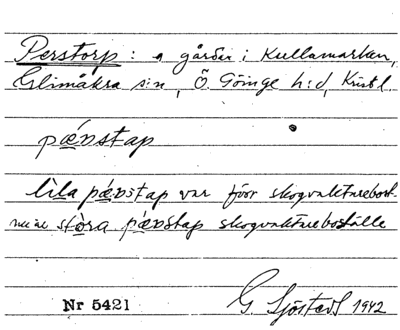 Perstorp: 2 gårdar i Kullamarken,
Glimåkra s:n, Ö. Göinge h:d, Krist l.
pæ̀ṣtap
lìla pæ̀ṣtap var förr skogvaktarebost-
stòra pæ̀ṣtap skogvaktareboställe
Nr 5421 G. Sjöstedt 1942